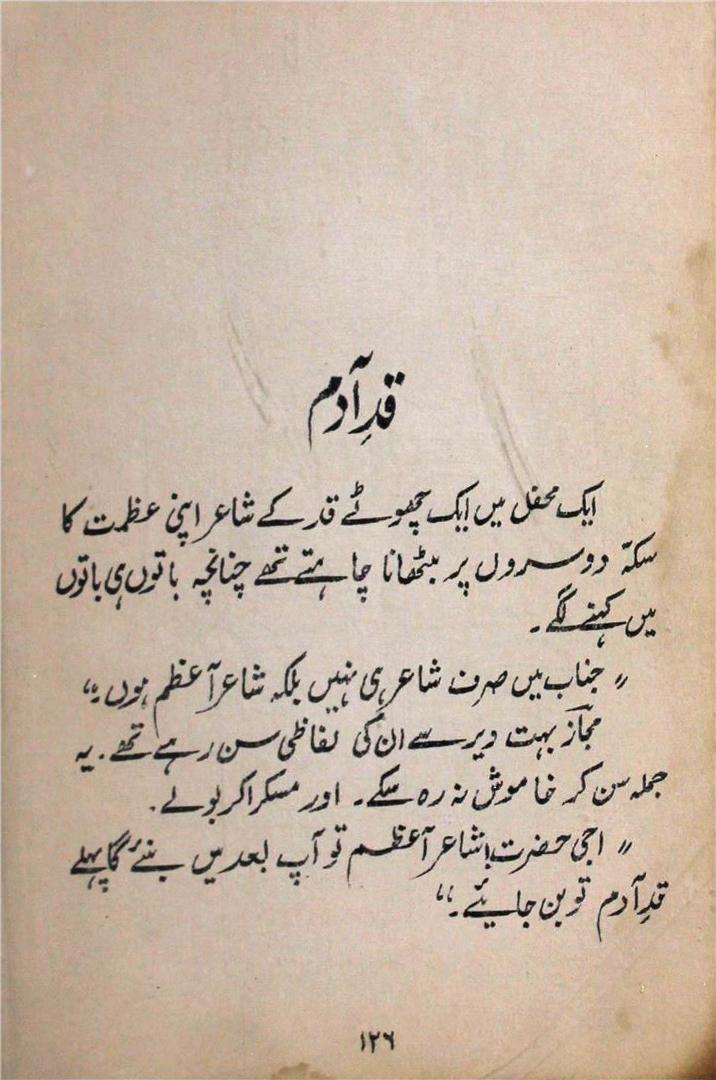 قدِ آدم
ایک محفل میں ایک چھوٹے قد کے شاعر اپنی عظمت کا
سکہّ دوسروں پر بیٹھانا چاہتے تھے چنانچہ باتوں ہی باتوں
میں کہنے لگے۔
"جناب میں صرف شاعر ہی نہیں بلکہ شاعر آعظم ہوں۔"
مجاز بہت دیر سے ان کی لفاظی سن رہے تھے۔ یہ
جملہ سن کر خاموش نہ رہ سکے۔ اور مسکرا کر بولے۔
"اجی حضرت! شاعر آعظم تو آپ بعد میں بنیئے گا پہلے
قدِ آدم تو بن جایئے۔"
۱۲۶